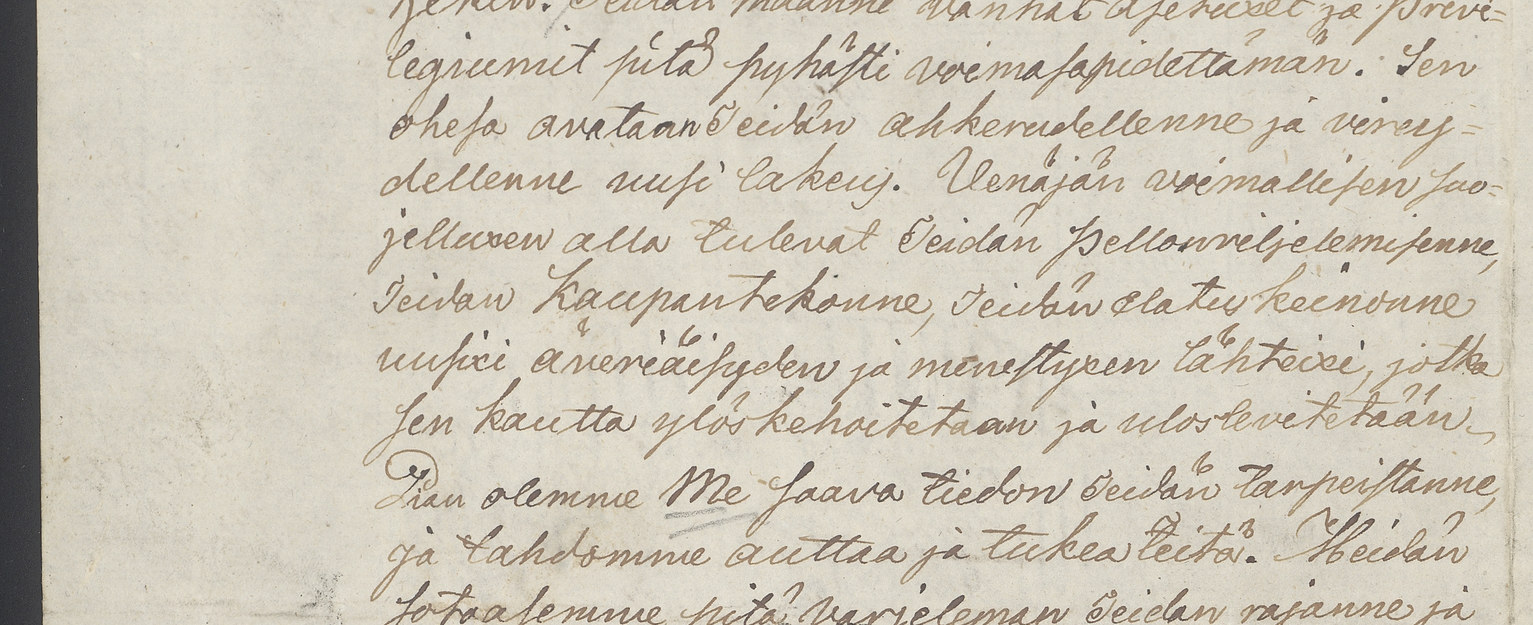 Teidän maanne vanhat Asetuxet ja Privi=
legiumit pitä pyhästi voimasapidettämän. Sen
ohesa avataan Teidän ahkerudellenne ja virey=
dellenne uusi lakeus. Venäjän voimallisen suo=
jelluxen alla tulevat Teidän Pellonviljelemisenne,
Teidan Kaupantekonne, Teidän elatuskeinonne
uusixi äveriäisyden ja menestyxen lähteixi, jotka
sen kautta ylöskehoitetaan ja uloslevitetään
Pian olemme Me saava tiedon Teidän tarpeistanne,
ja tahdomme auttaa ja tukea Teitä. Meidän
sotaasemme pitä varjeleman Teidan rajanne ja